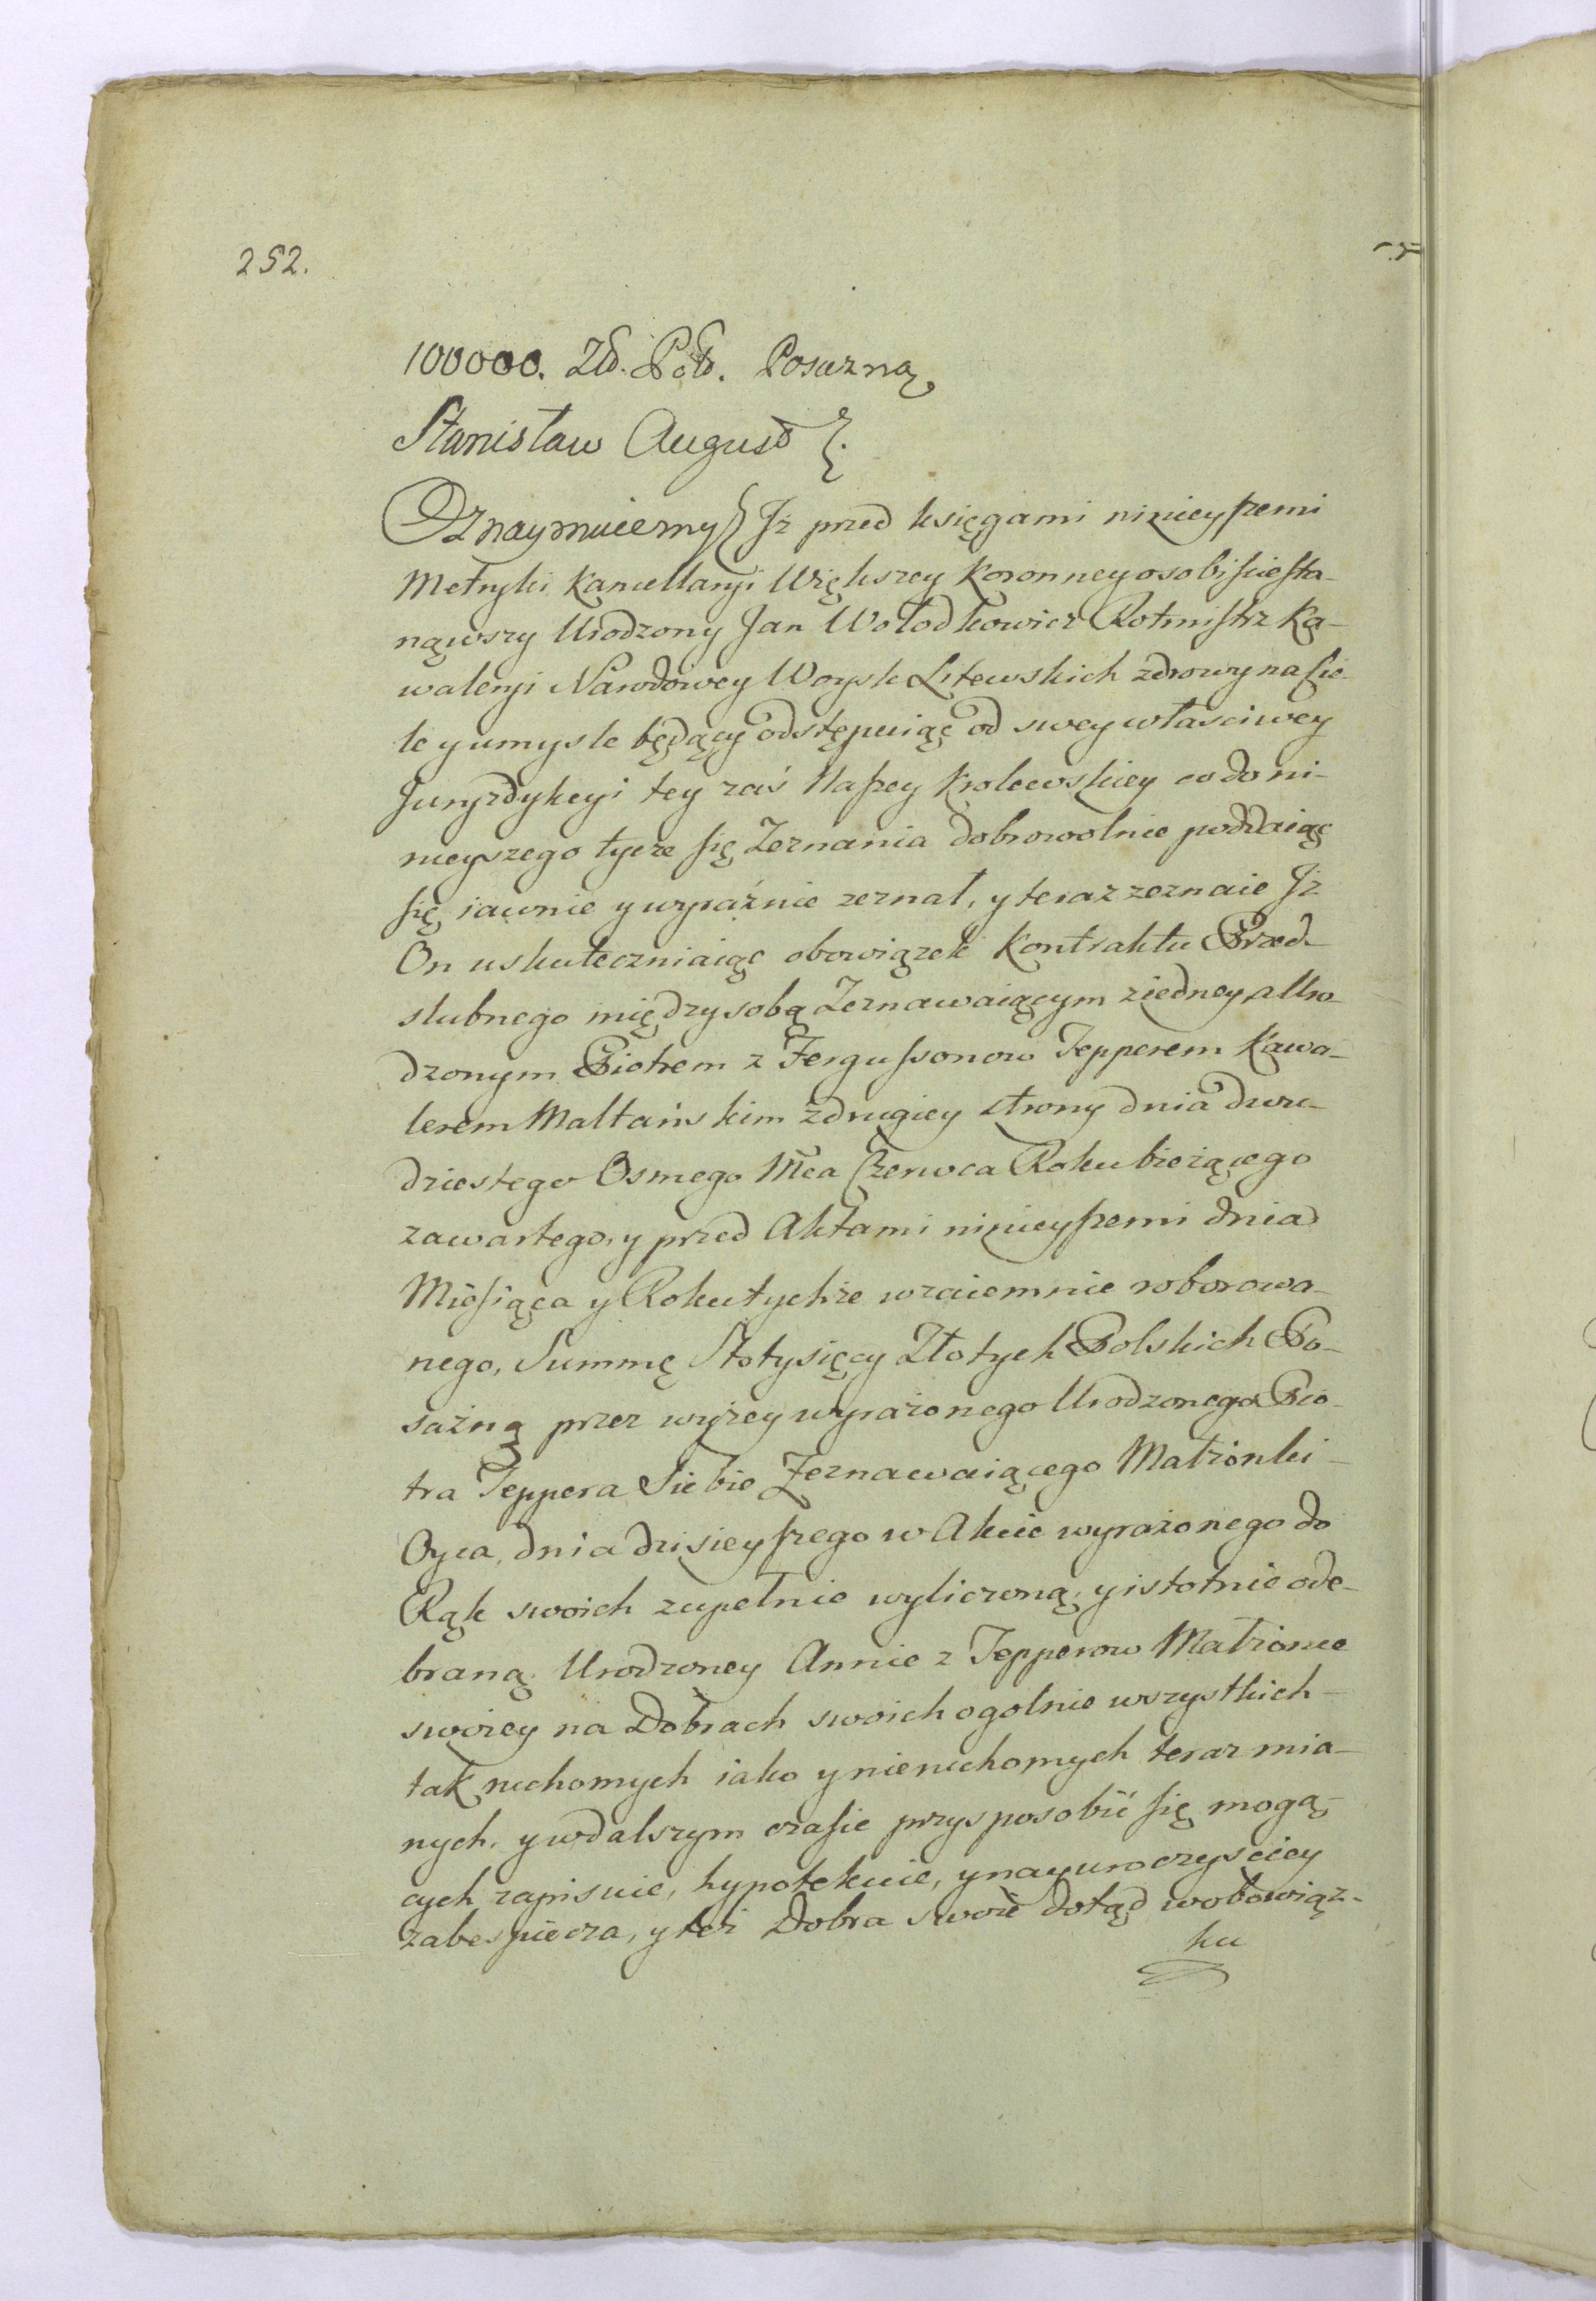 252.
100000. Zł. Pol. Posazną
Stanisław August
Oznaymuiemy Jż przed księgami ninieyszemi
Metryki Kancellaryi Większey Koronney osobiście sta-
nąwszy Urodzony Jan Wołodkowicz Rotmistrz Ka-
waleryi Narodowey Woysk Litewskich zdrowy na cie-
le y umysle będący odstępuiąc od swey właściwey
Juryzdykcyi tey zaś Naszey Krolewskiey co do ni-
nieyszego tycze się Zeznania dobrowolnie poddaiąc
się iawnie y wyraźnie zeznał, y teraz zeznaie Jż
On uskuteczniaiąc obowiązek Kontraktu Przed-
slubnego między sobą Zeznawaiącym z iedney, a Uro-
dzonym Piotrem z Fergussonow Tepperem Kawa-
lerem Maltańskim z drugiey strony dnia dwu-
dziestego Osmego Mca Czerwca Roku bieżącego
zawartego, y przed Aktami ninieyszemi dnia
Miesiąca y Roku tychże wzaiemnie roborowa-
nego, Summę Stotysięcy Złotych Polskich Po-
sażną przez wyżey wyrażonego Urodzonego Pio-
tra Teppera Siebie Zeznawaiącego Małżonki
Oyca, dnia dzisieyszego w Akcie wyrażonego do
Rąk swoich zupełnie wyliczoną, y istotnie ode-
braną, Urodzoney Annie z Tepperow Małżonce
swoiey na Dobrach swoich ogolnie wszystkich
tak ruchomych iako y nieruchomych teraz mia-
nych, y w dalszym czasie przysposobić się mogą-
cych zapisuie, hypotekuie, y nayuroczyściey
zabespiecza, y też Dobra swoie dotąd w obowiąz-
ku